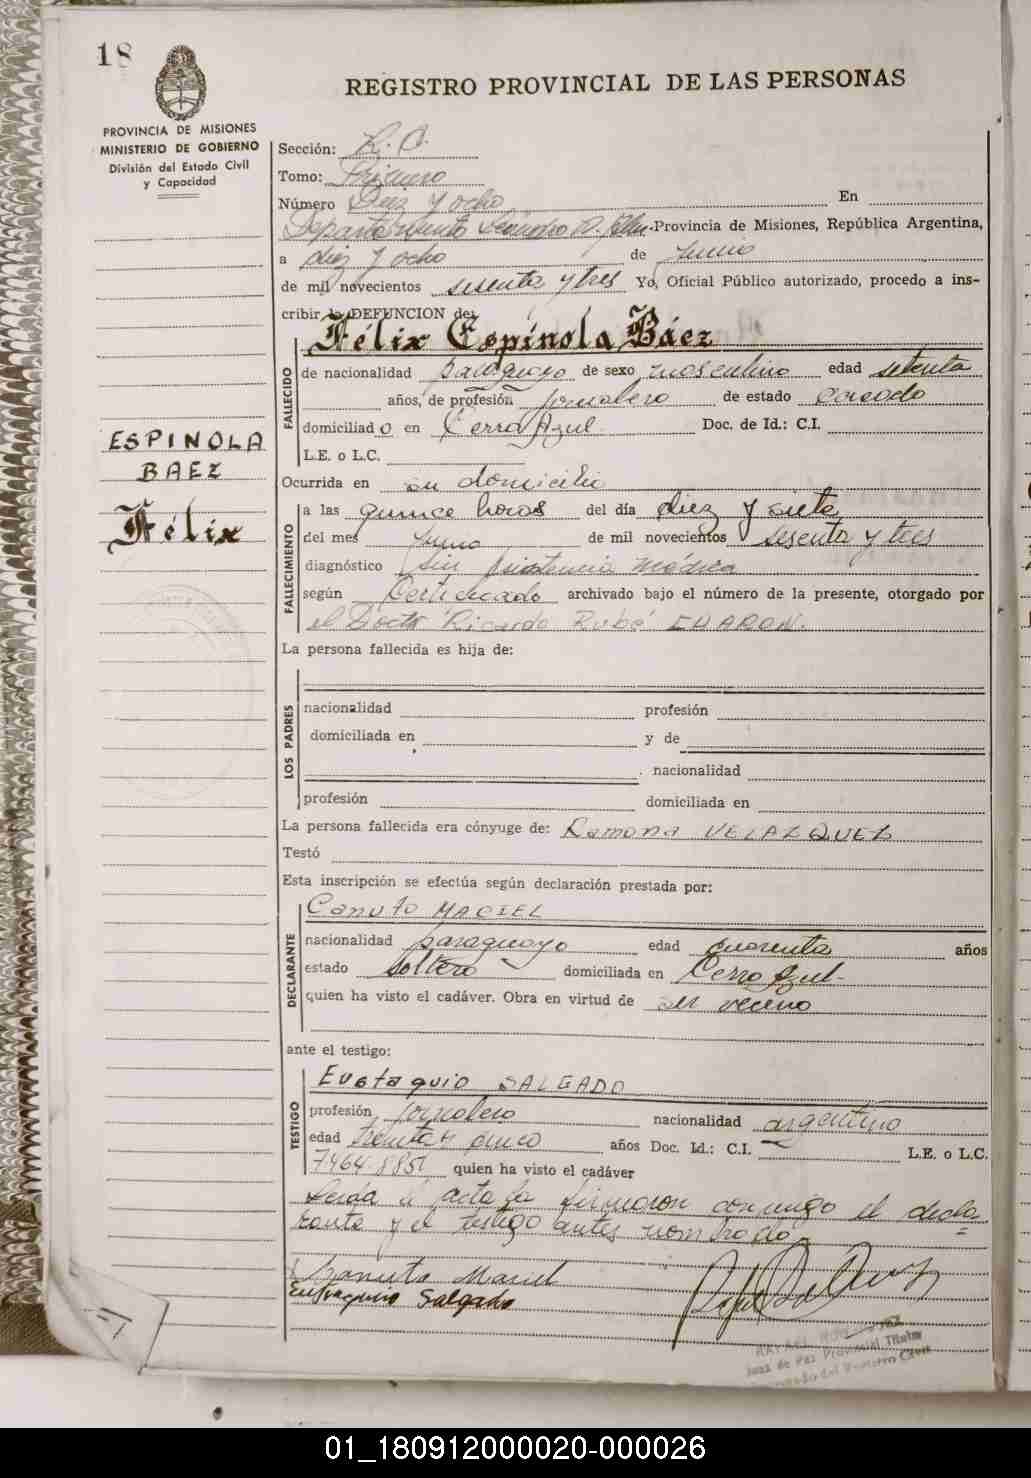 18
PROVINCIA DE MISIONES
MINISTERIO DE GOBIERNO
División del Estado Civil
y Capacidad
REGISTRO PROVINCIAL DE LAS PERSONAS
Sección:
Tomo: Primero
Número Diez y ocho En
Departamento Leandro N. Alem Provincia de Misiones, República Argentina,
a diez y ocho de Junio
de mil novecientos sesenta y tres Yo, Oficial Público autorizado, procedo a ins-
cribir la DEFUNCION de:
Félix Espínola Báez
FALLECIDO
de nacionalidad paraguayo de sexo masculino edad setenta
años, de profesión jornalero de estado casado
domiciliado en Cerro Azul Doc. de Id.: C.I.
L.E. o L.C.
ESPINOLA
BAEZ
Félix
Ocurrida en su domicilio
FALLECIMIENTO
a las quince horas del día diez y siete
del mes Junio de mil novecientos sesenta y tres
diagnóstico Sin asistencia médica
según Certificado archivado bajo el número de la presente, otorgado por
el Doctor Ricardo Rubé CHARON.
La persona fallecida es hija de:
LOS PADRES
nacionalidad profesión
domiciliada en y de
nacionalidad
profesión domiciliada en
La persona fallecida era cónyuge de: Ramona VELAZQUEZ
Testó
Esta inscripción se efectúa según declaración prestada por:
Canuto MACIEL
DECLARANTE
nacionalidad paraguayo edad cuarenta años
estado soltero domiciliada en Cerro Azul
quien ha visto el cadáver. Obra en virtud de ser vecino
ante el testigo:
Eustaquio SALGADO
TESTIGO
profesión jornalero nacionalidad argentino
edad treinta y cinco años Doc. Id.: C.I. L.E. o L.C.
quien ha visto el cadáver
Leída el acta la firmaron conmigo el decla-
rante y el testigo antes nombrado
Canuto Maciel
Salgado
Juez de Paz Provincial Titular
del Registro Civil
01_180912000020-000026